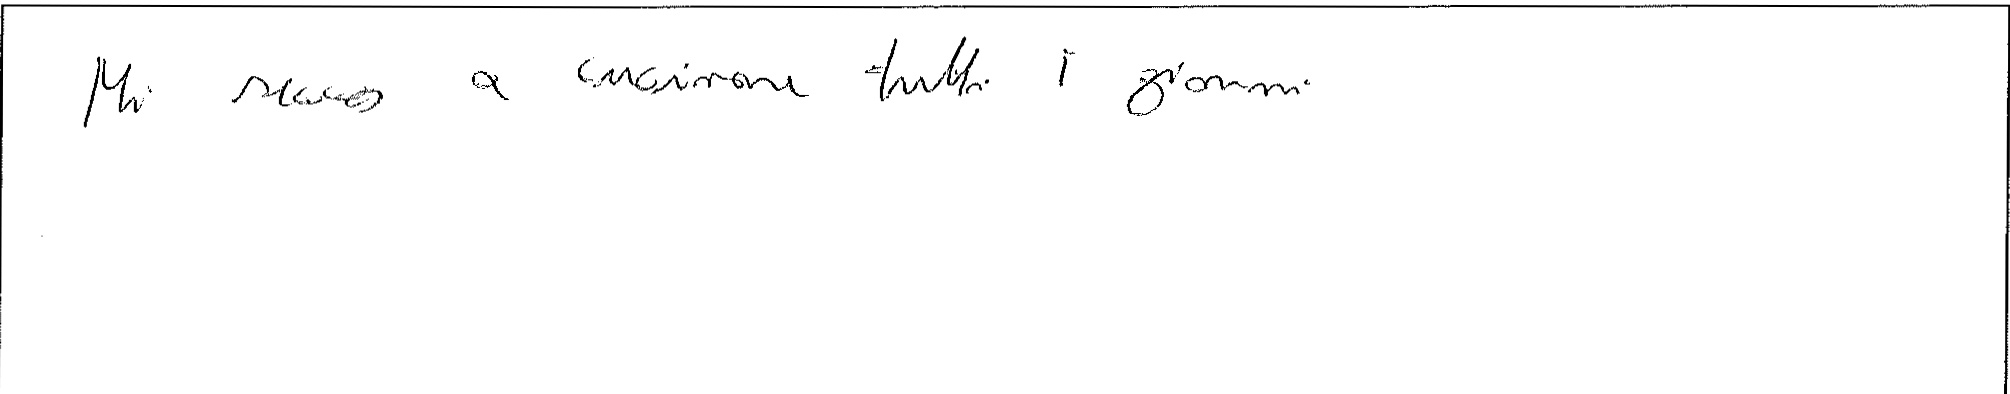 Mi reco a cucinare tutti i giorni